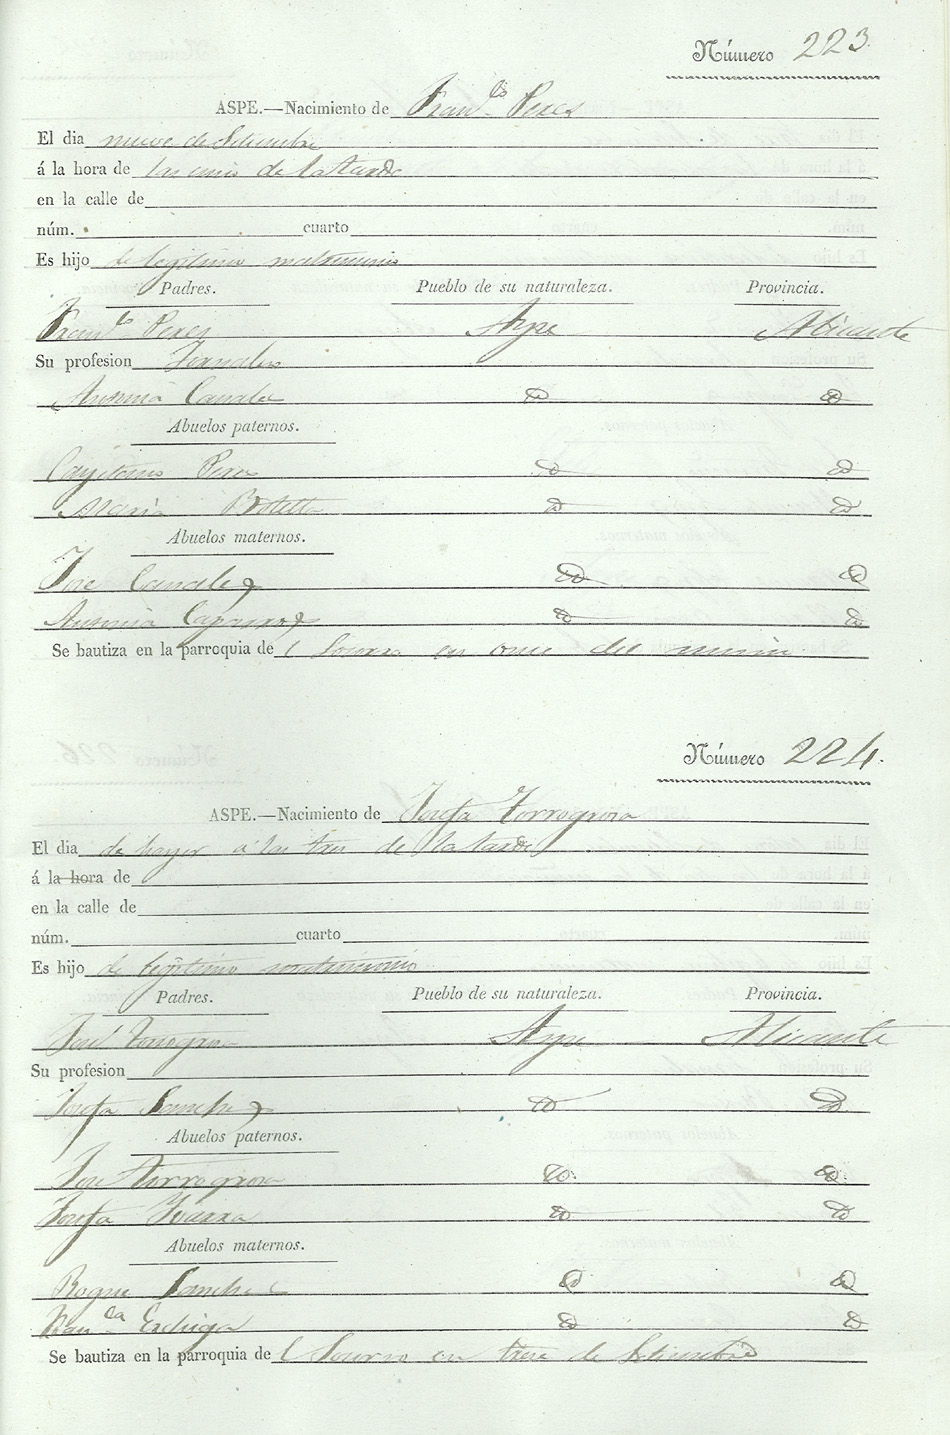 Número 223.
ASPE.—Nacimiento de Fran.co Perez
El dia nueve de Setiembre
á la hora de las cinco de la tarde
en la calle de
núm. cuarto
Es hijo de legitimo matrimonio
Padres. Pueblo de su naturaleza. Provincia.
Fran.co Perez Aspe Alicante
Su profesion Jornalero
Antonia Canales id id
Abuelos paternos.
Cayetano Perez id id
Maria Botella id id
Abuelos maternos.
Jose Canales id id
Antonia id id
Se bautiza en la parroquia del Socorro en once del mismo
Número 224.
ASPE.—Nacimiento de Josefa Torregrosa
El dia de hayer á las tres de la tarde
á la hora de
en la calle de
núm. cuarto
Es hijo de legitimo matrimonio
Padres. Pueblo de su naturaleza. Provincia.
José Torregrosa Aspe Alicante
Su profesion
Josefa Sanchez id id
Abuelos paternos.
Jose Torregrosa id id
Josefa Ivarra id id
Abuelos maternos.
Roque Sanchez id id
Fran.ca id id
Se bautiza en la parroquia del Socorro en trece de Setiembre